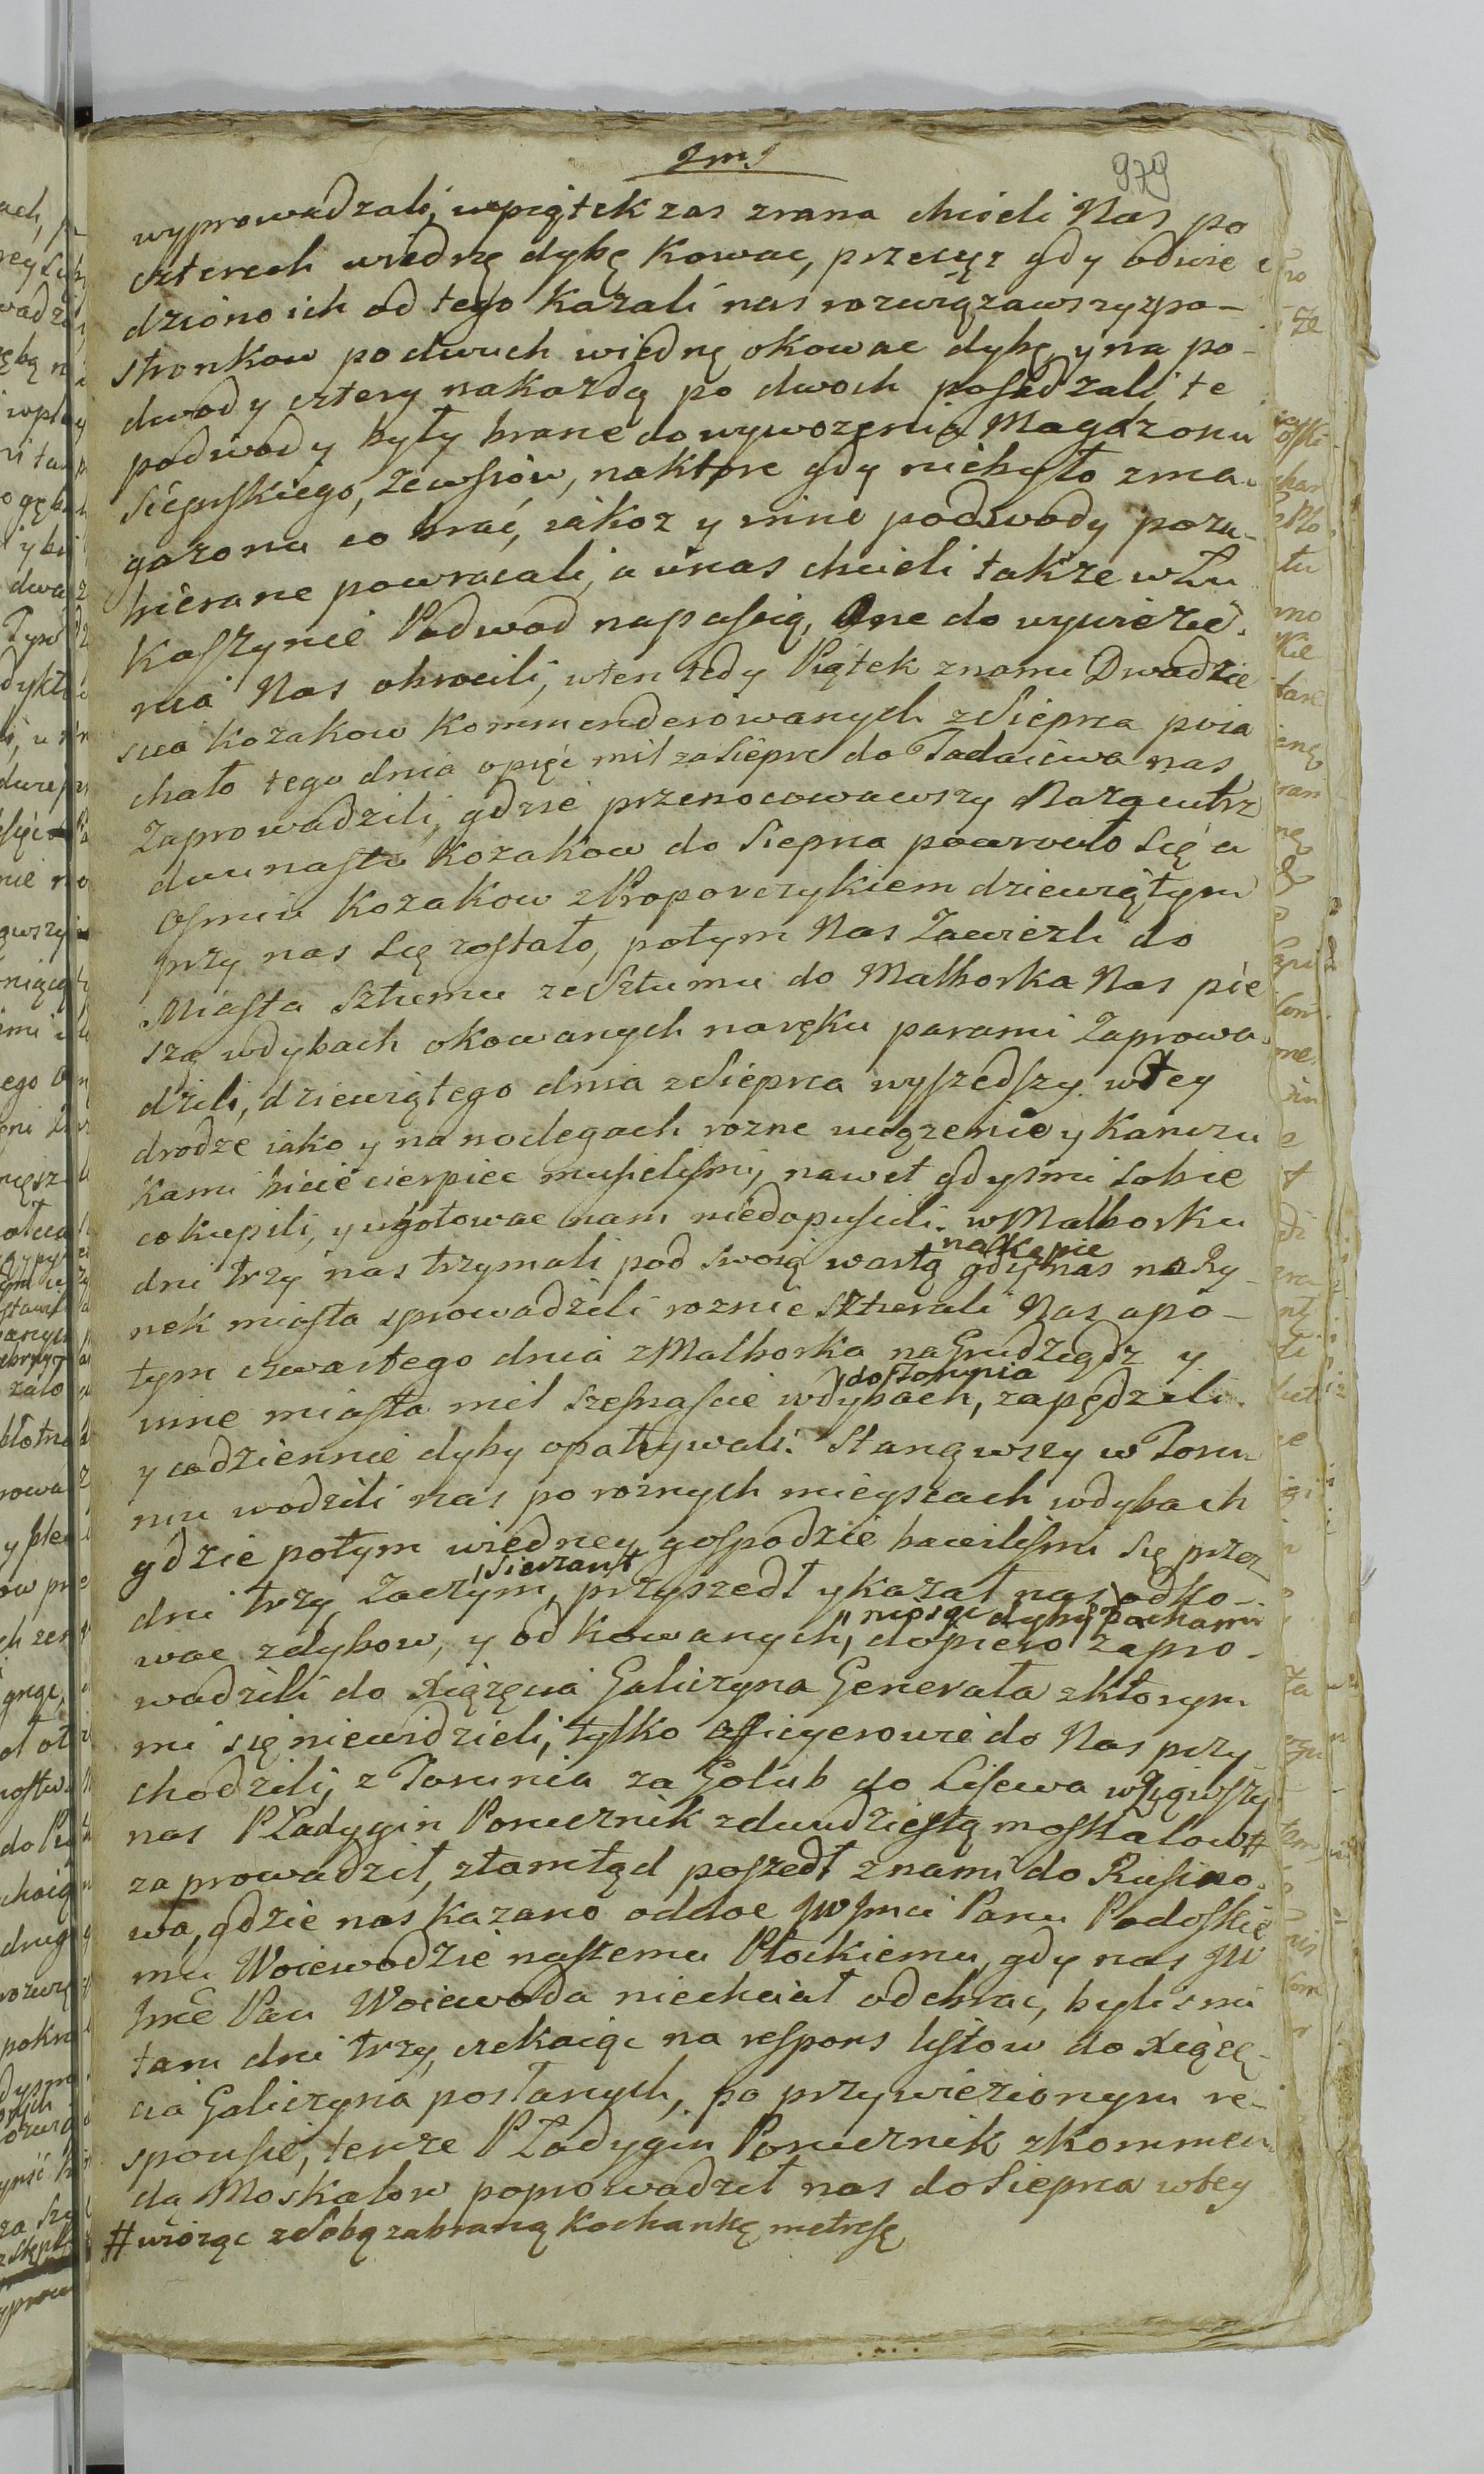 979
wyprowadzali, wpiątek zas zrana chcieli Nas po
czterech wiednę dybę kowac, przecęz gdy odwie
dziono ich od tego kazali nas rozwiązawszy zpo-
stronkow po dwuch wiednę okowac dybę y na po-
dwody cztery nakazdą po dwoch posadzali, te
podwody były brane do wywozenia Magazonu
Siepskiego, zewsiow, naktore gdy niebyło zma-
gazonu co brać, iakoz y inne podwody poza-
bierane powracali, a unas chcieli także w Łu
kaszynie Podwod napascią, One do wywiezie-
nia Nas obrocili, wten tedy Piątek znami Dwadzie
scia kozakow kommenderowanych zSiepca poia
chało tego dnia opięć mil za Siepre do Tadaiewa nas
zaprowadzili, gdzie przenocowawszy Nazaiutrz
dwunastu kozakow do Siepca powrociło się a
osmiu kozakow zPropovczykiem dziewiątym
przy nas się zostało, potym Nas Zawiezli do
Miasta Sztumu ze Sztumu do Malborka Nas pie
szą wdybach okowanych naręku parami Zaprowa-
dzili, dziewiątego dnia zSiepca wyszedszy. wtey
drodze iako y na noclegach rozne urągzenie y kanczu
kami bicie cierpiec musielismy, nawet gdysmi sobie
co kupili, y ugotowac nam niedopuscili. w Malborku
dni trzy nas trzymali pod swoią wartą gdy nas naRy-
na Kępie
nek miasta sprowadzili roznie szturali Nas apo-
tym czwartego dnia zMalborka na Grudziądz y
inne miasta mil szesnascie wdybach, zapędzili.
do Torunia
y codziennie dyby opatrywali. Stanąwszy w Toru
niu wodzili nas po roznych mieyscach wdybach
gdzie potym wiedney gospodzie bawilismi się przez
dni trzy zaczym, przyszedł ykazał nas odko-
sierzant
wac zdybow, y odkowanych, dopiero zapro-
niosąc dyby pod pachami
wadzili do Xiązęcia Galiczyna Generała zktorym
mi się niewidzieli, tylko officyerowie do Nas przy
chodzili, z Torunia za Golub do Lisewa wziąwszy
nas P Ładygin Porucznik zdwudziestą moskalow #
zaprowadził, ztamtąd poszedł znami do Rusino-
wa, gdzie nas kazano oddac JWJmci Panu Podoskie
mu Woiewodzie naszemu Płockiemu, gdy nas JW
Jmć Pan Woiewoda niechciał odebrac, bylismi
tam dni trzy, czekaiąc na respons listow do Xiązę-
cia Galiczyna posłanych, po przywiezionym re-
sponsie, tenze P Ładygin Porucznik zkommen
dą Moskalow poprowadził nas do Siepca wtey
# wioząc zsobą zabraną kochankę metressę